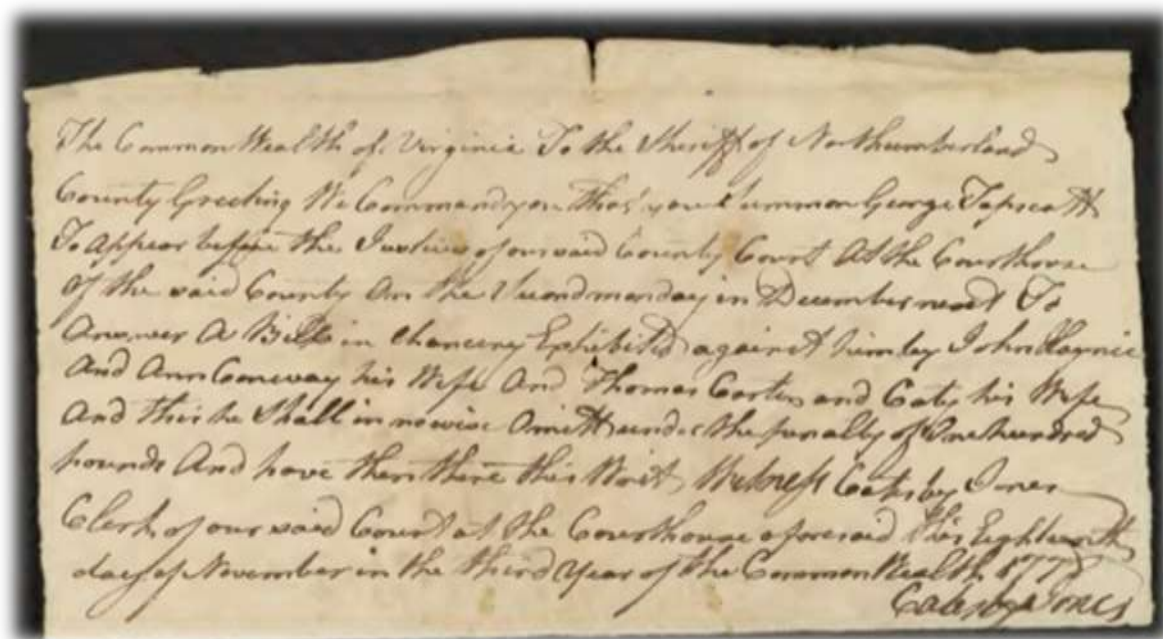 The CommonWealth of Virginia To the Sheriff of Northumberland
County Greeting We Command you that you Summon George Tapscott
To Appear before the Justices of our said County Court At the Courthouse
Of the said County On the Second monday in December next To
Answer A Bill in Chancery Exhibited against him by John Haynie
And Ann Conway his Wife And Thomas Carter and Caty his Wife
And this he Shall in nowise Omitt under the penalty of One hundred
pounds And have then there this Writ Witness Catesby Jones
Clerk of our said Court at the Courthouse aforesaid this Eighteenth
day of November in the third Year of the CommonWealth
Catesby Jones